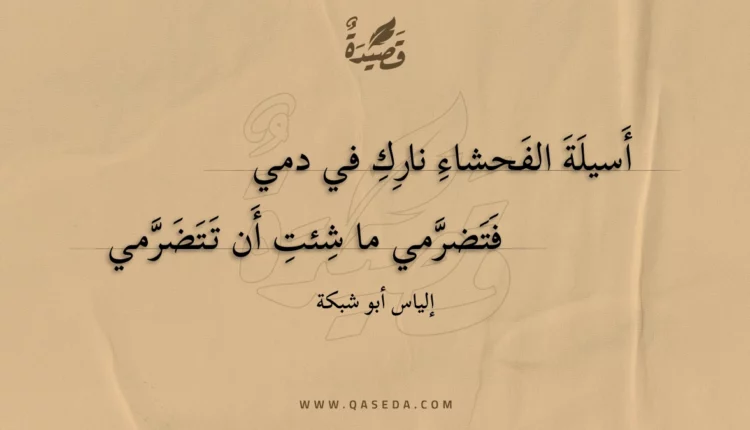 قَصِيْدَةٌ
أَسيلَةَ الفَحشاءِ نارِكِ في دمي
فَتَضرَّمي ما شِئتِ أَن تَتَضَرَّمي
إلياس أبو شبكة
WWW.QASEDA.COM